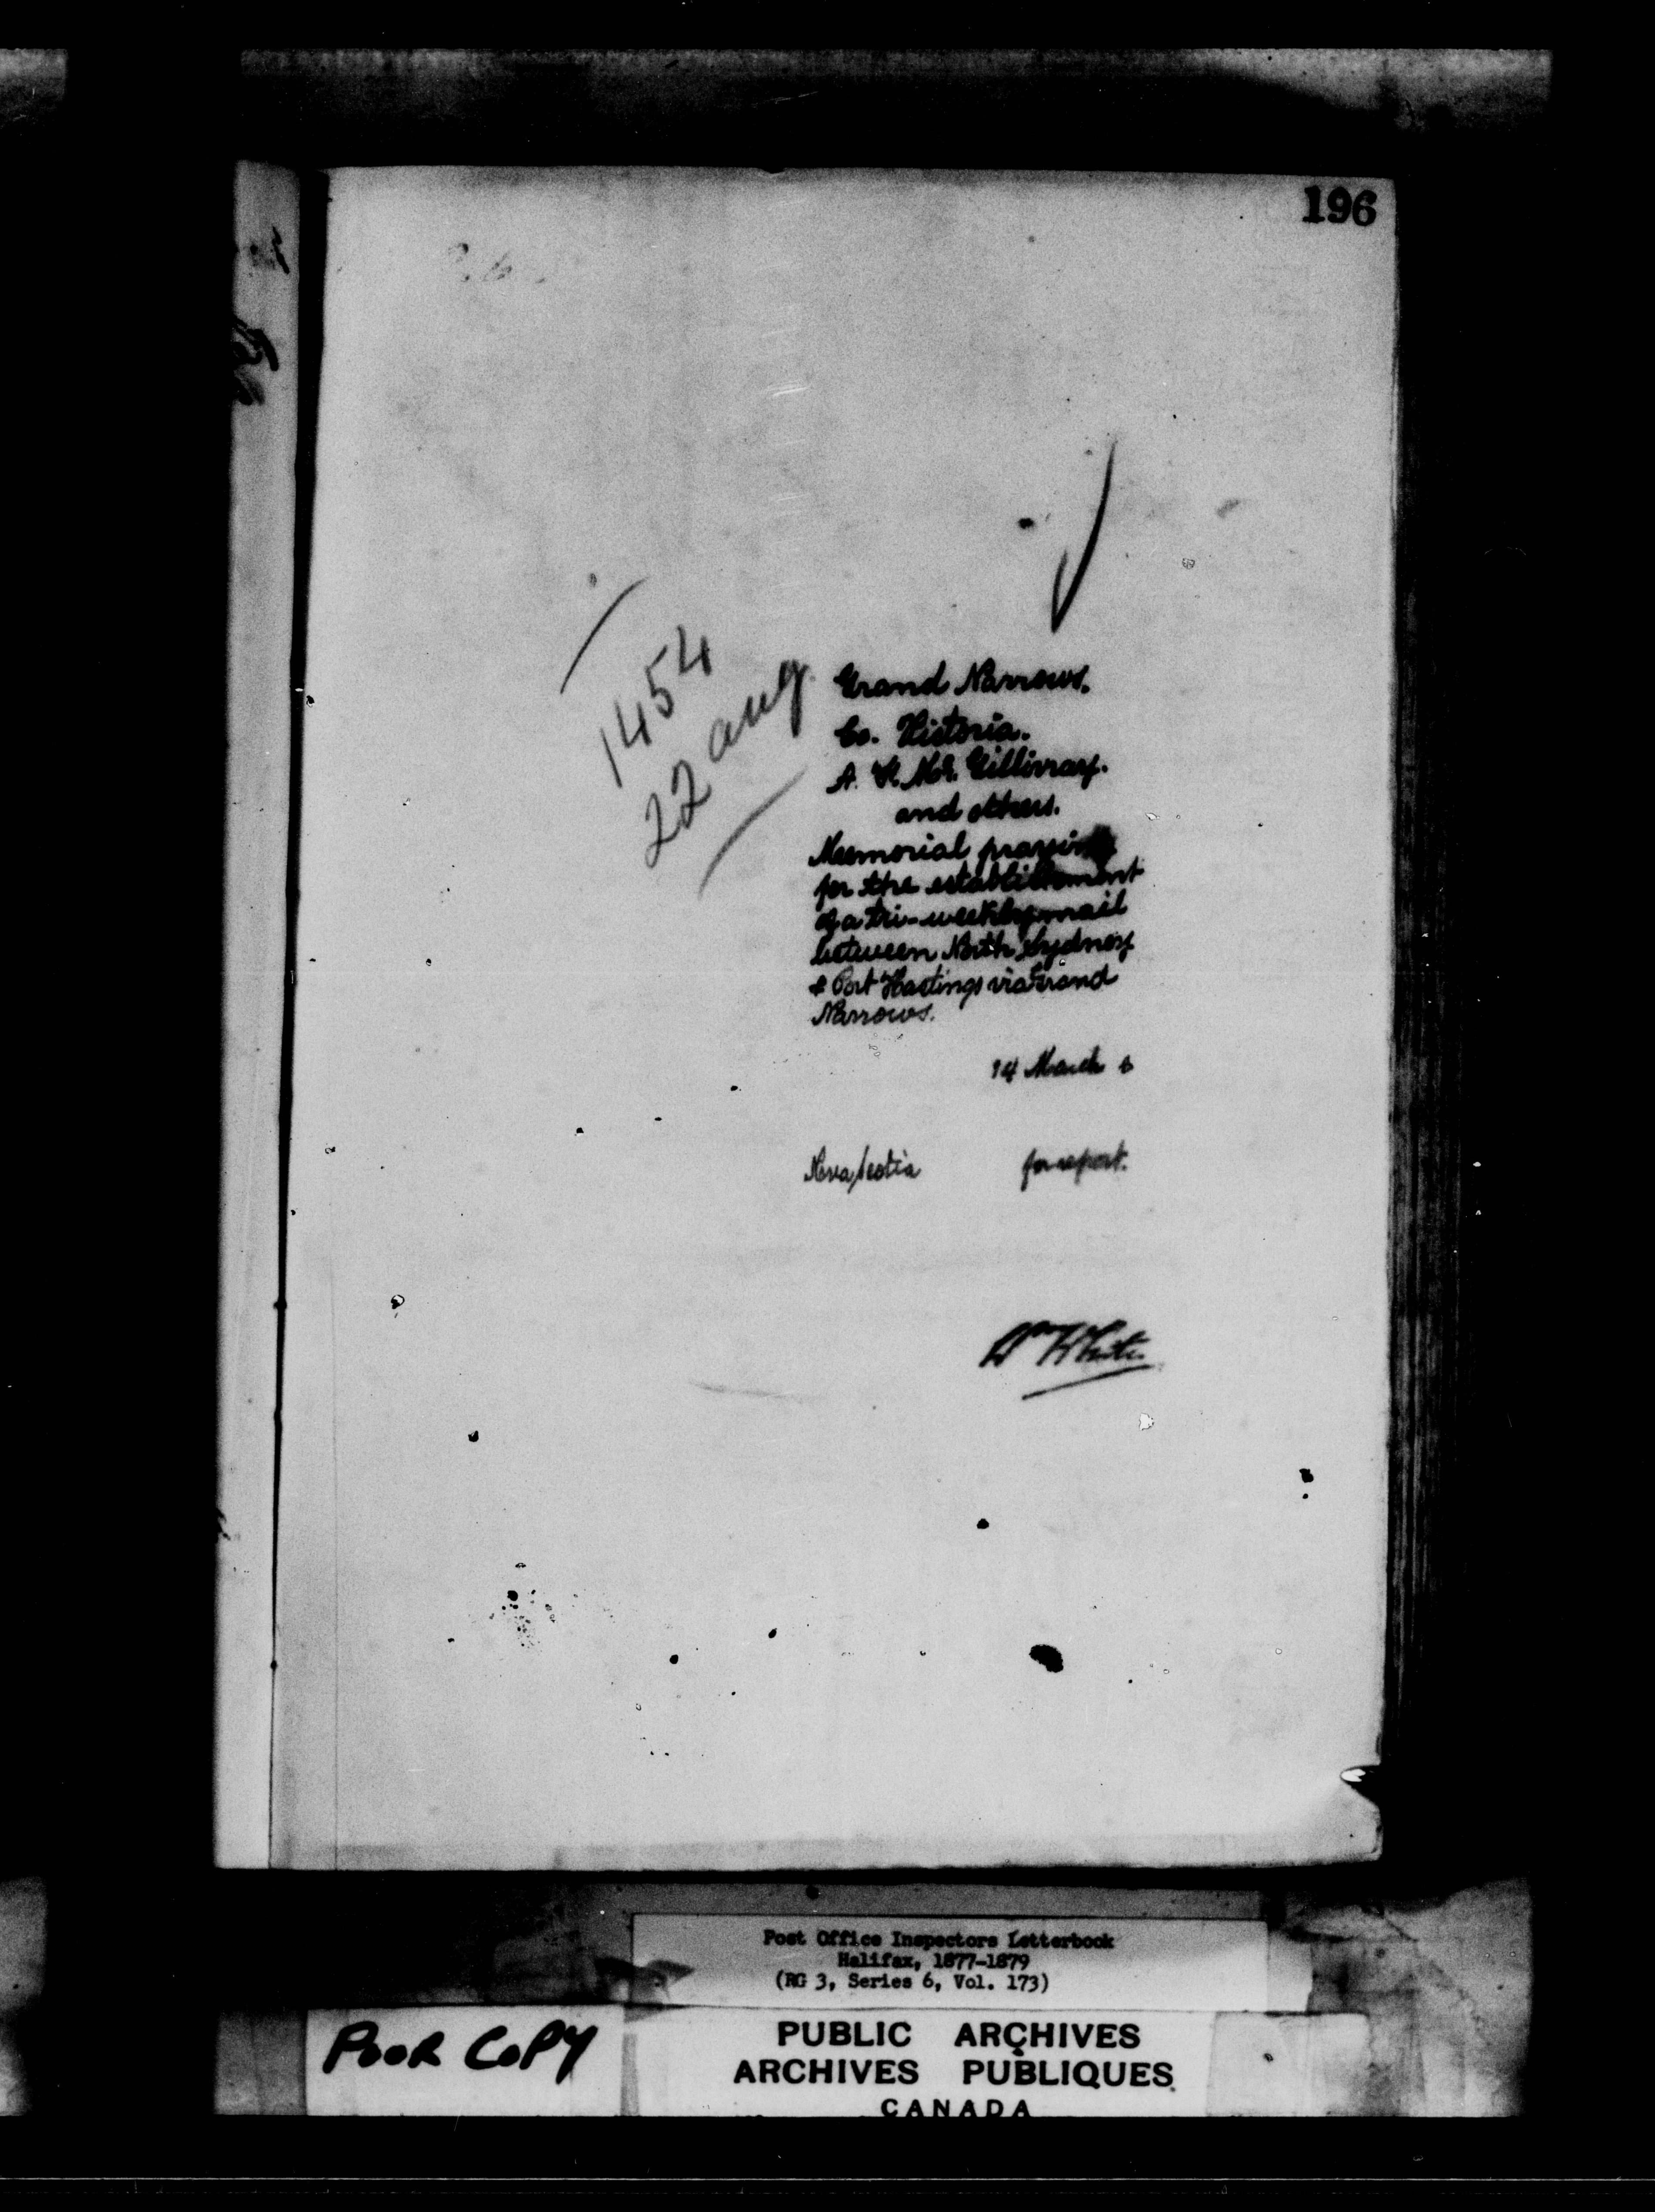 196
1454
22 aug
Grand Narrows.
Co. Victoria.
A. Mc. Gillivray.
and others.
Memorial praying
for the establishment
of a tri-weekly mail
between North Sydney
& Port Hastings via Grand
Narrows.
14 March
Nova Scotia for report.
Wm White
Post Office Inspectors Letterbook
Halifax, 1877-1879
(RG 3, Series 6, Vol. 173)
POOR COPY
PUBLIC ARCHIVES
ARCHIVES PUBLIQUES
CANADA